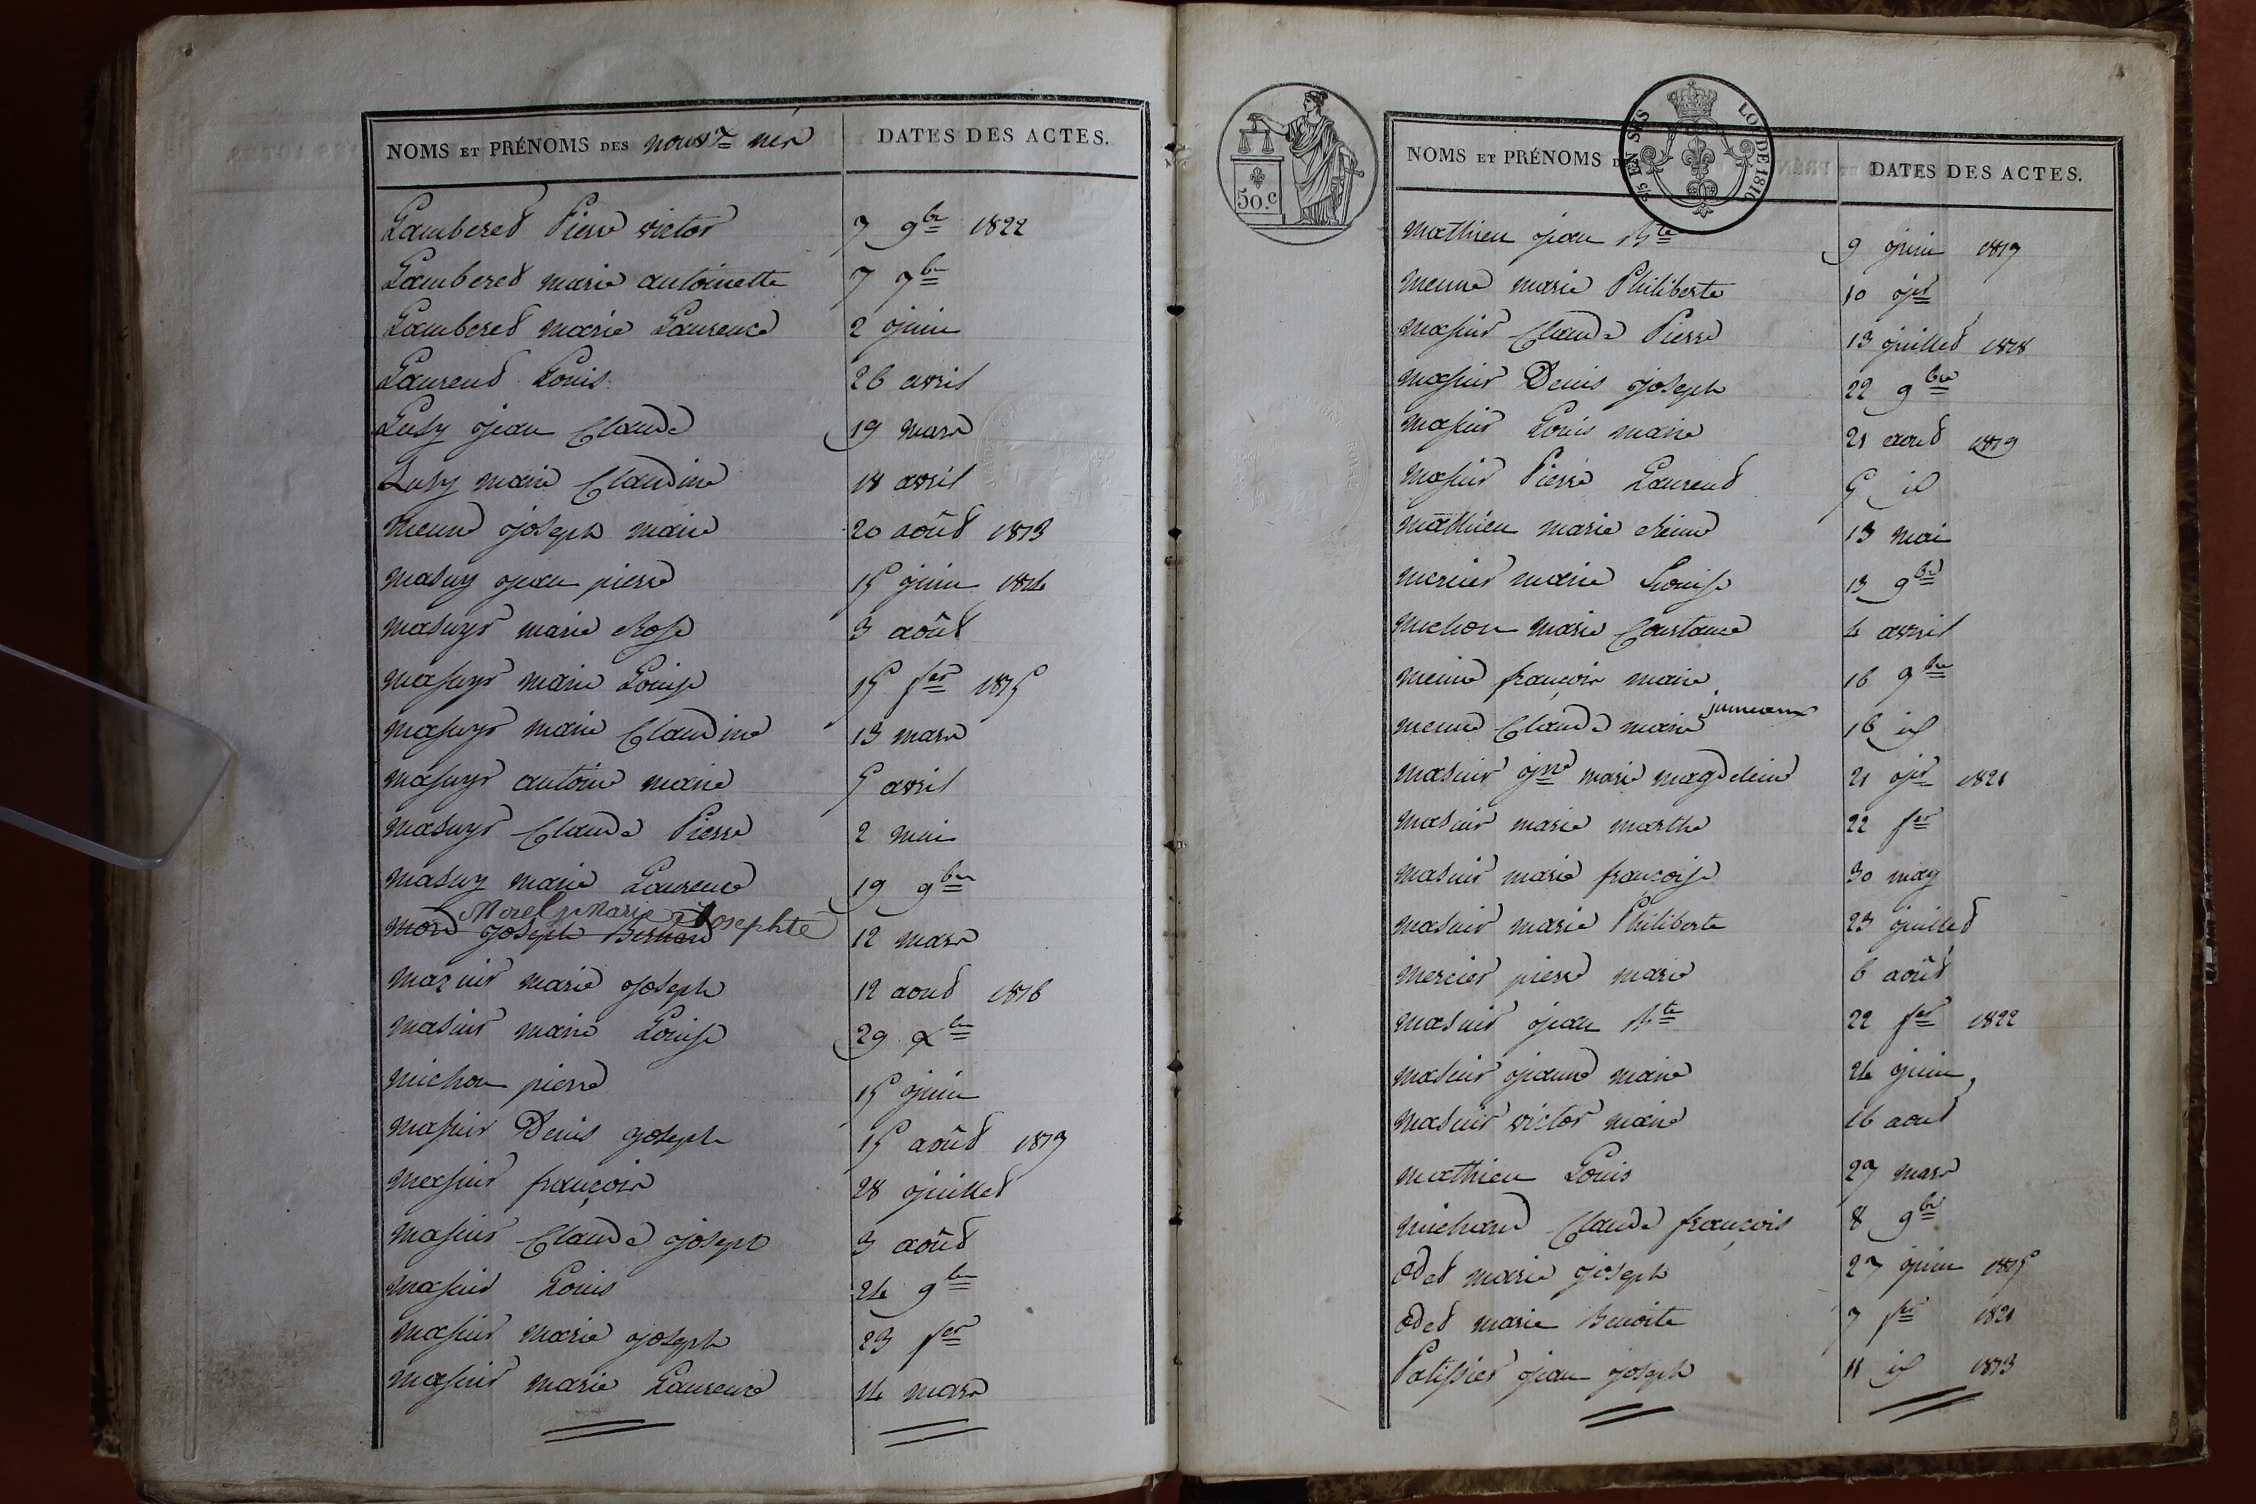 NOMS ET PRÉNOMS DES nouvx nés DATES DES ACTES.
Lamberet Pierre victor 7 9bre 1822
Lamberet marie antoinette 7 7bre
Lamberet marie Laurence 2 juin
Laurent Louis 26 avril
Luzy jean Claude 19 mars
Luzy marie Claudine 18 avril
menne joseph marie 20 août 1813
masuy jean pierre 15 juin 1814
masuyr marie Rose 3 août
masuyr marie Louise 15 fer 1815
masuyr marie Claudine 13 mars
masuyr antoine marie 5 avril
masuyr Claude Pierre 2 mai
masuy marie Laurence 19 9bre
Morel Marie Josephte
joseph 12 mars
mazuir marie joseph 12 aout 1816
masuir marie Louise 29 Xbre
michon pierre 15 juin
masuir Denis joseph 15 août 1817
masuir françois 28 juillet
masuir Claude joseph 3 août
masuir Louis 24 9bre
masuir marie joseph 23 fer
masuir marie Laurence 14 mars
50.c
LOI DE 1816
NOMS ET PRÉNOMS DATES DES ACTES.
mathieu jean Bte 9 juin 1817
menne marie Philiberte 10 jer
masuir Claude Pierre 13 juillet 1818
masuir Denis joseph 22 9bre
masuir Louis marie 21 aout 1819
masuir Pierre Laurent 5 id
mathieu marie Reine 13 mai
mercier marie Louise 13 9bre
michon marie Constance 4 avril
menne françois marie 16 9bre
jumeaux
menne Claude marie 16 id
masuir jne marie magdeleine 21 jer 1821
masuir marie marthe 22 fer
masuir marie françoise 30 may
masuir marie Philiberte 23 juillet
mercier pierre marie 6 août
masuir jean Bte 22 fer 1822
masuir jeanne marie 24 juin
masuir victor marie 16 aout
mathieu Louis 27 mars
michard Claude françois 8 9bre
odet marie joseph 27 juin 1815
odet marie Benoite 7 fer 1821
Patissier jean joseph 11 id 1813